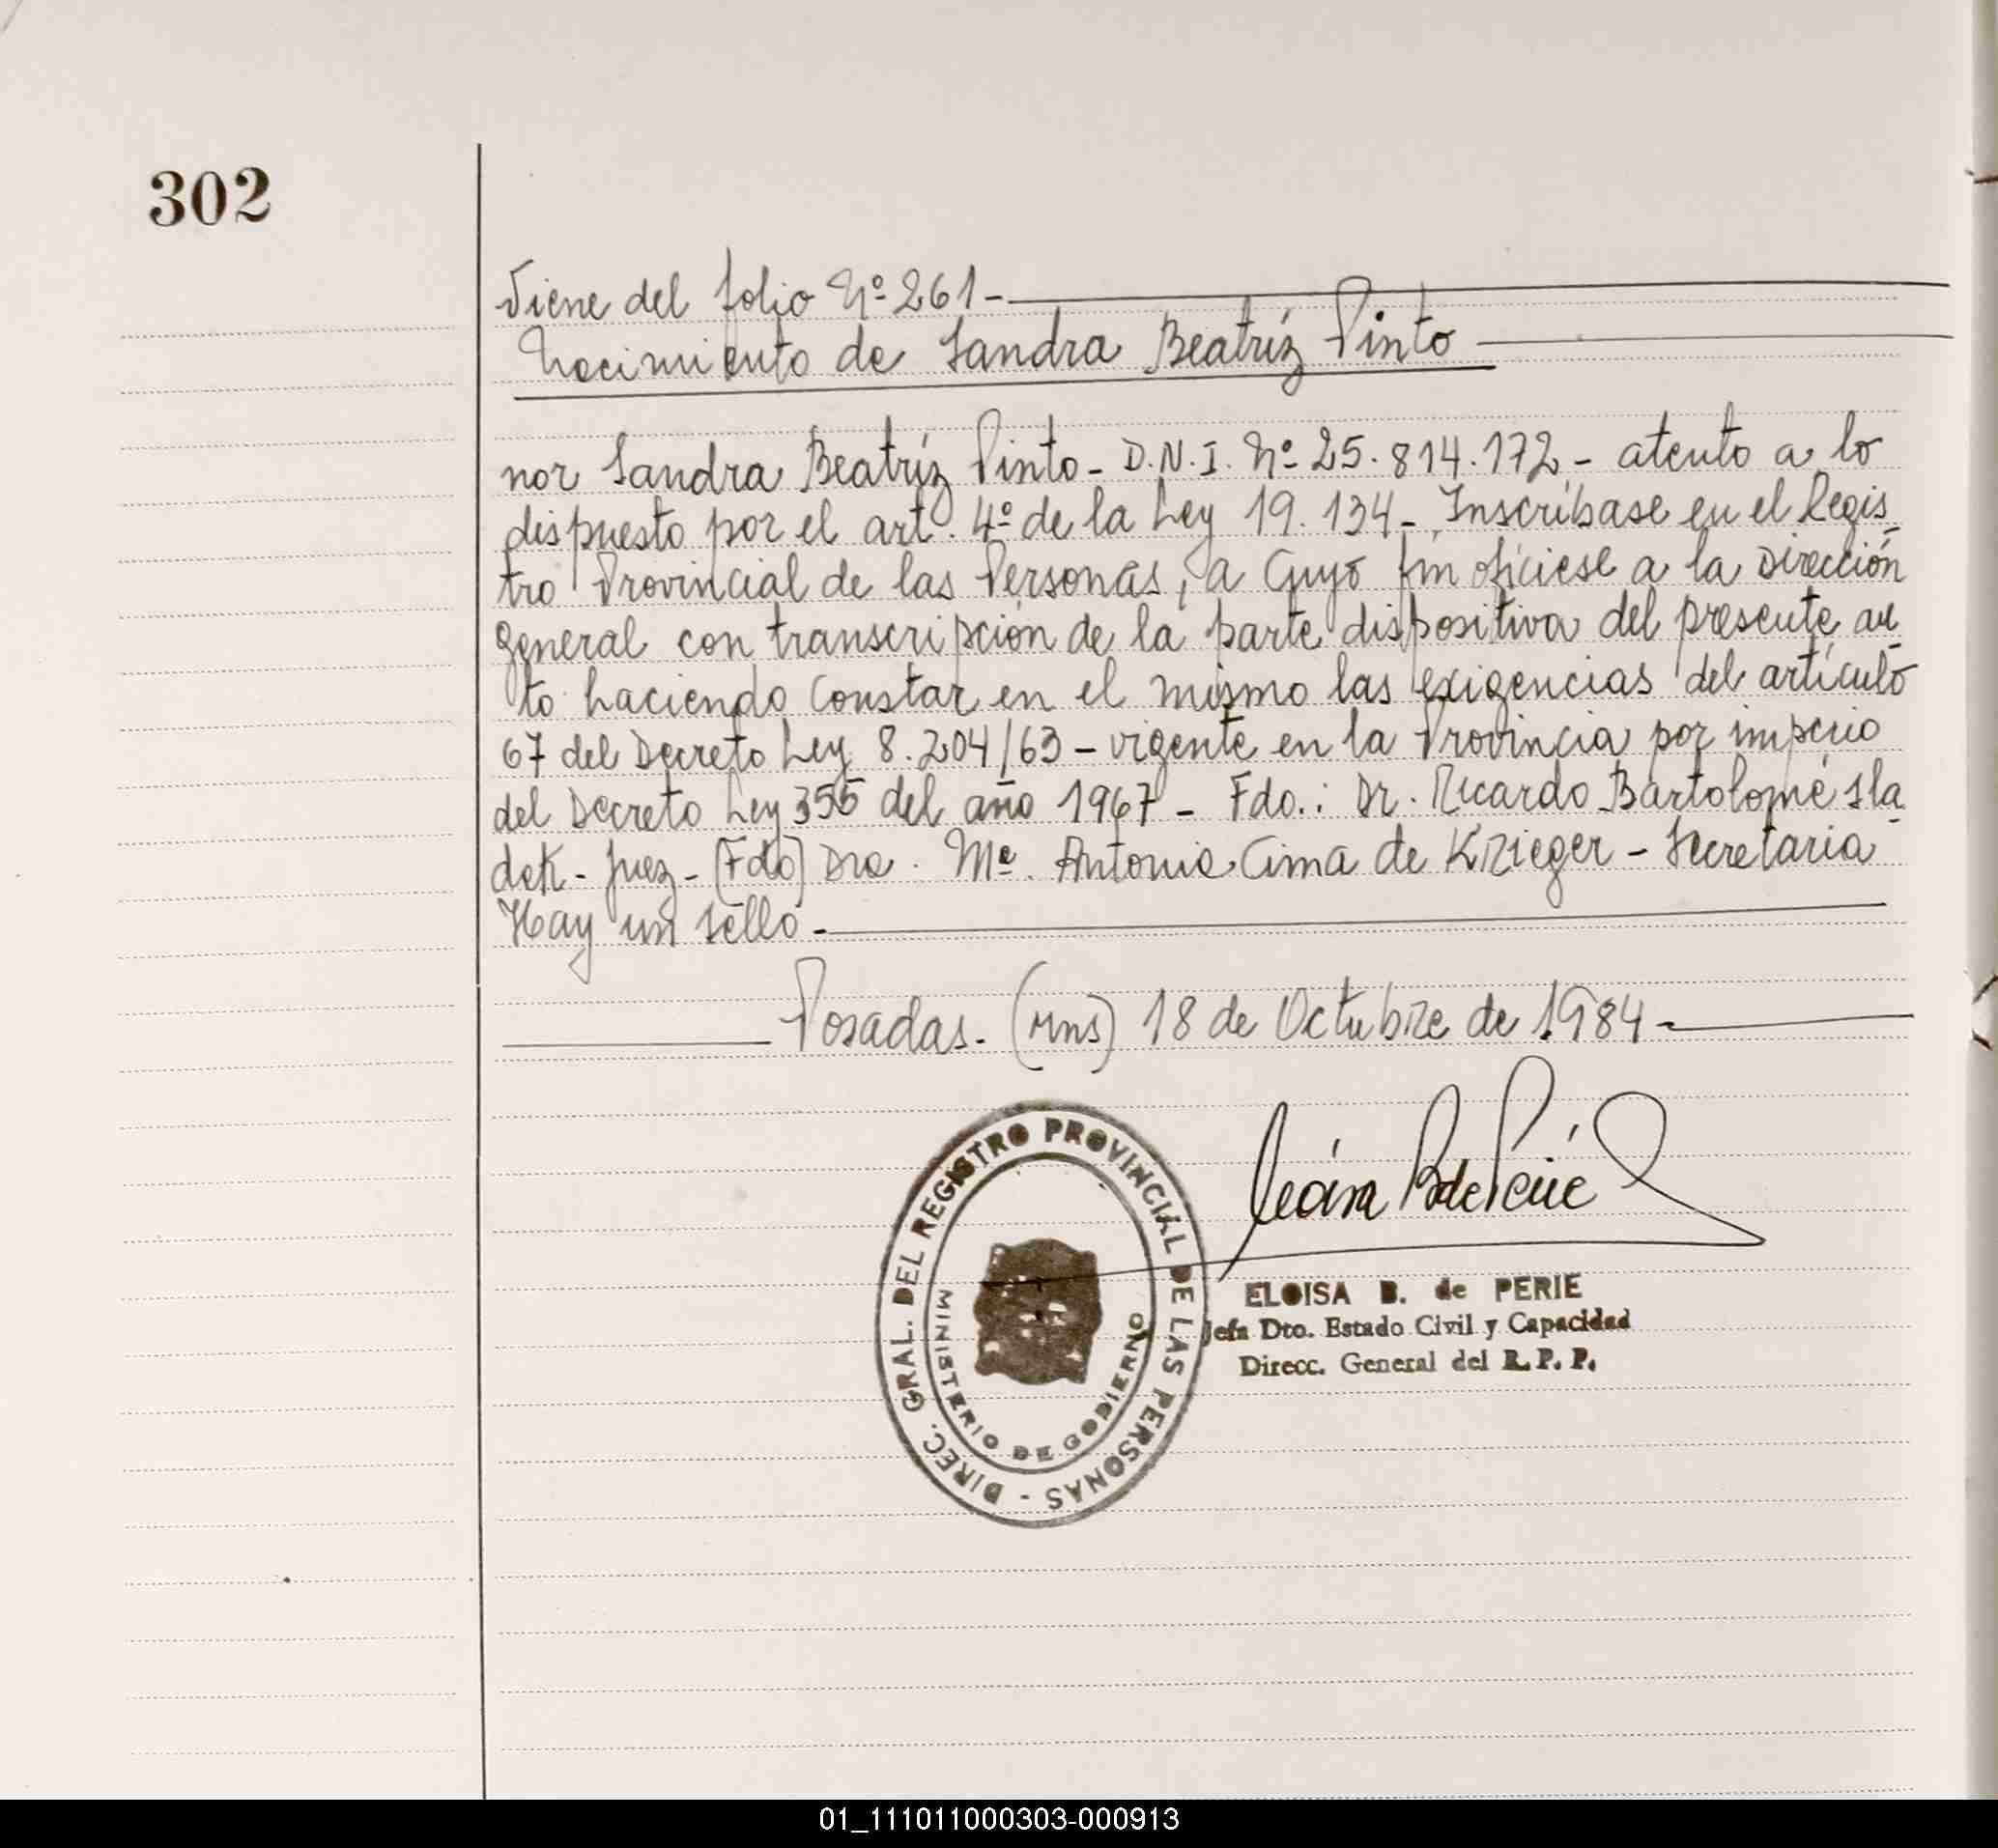 302
Viene del folio Nº 261 -
Nacimiento de Sandra Beatríz Pinto
nor Sandra Beatríz Pinto - D.N.I. Nº 25.814.172 - atento a lo
dispuesto por el art. 4º de la Ley 19.134 - Inscríbase en el Regis
tro Provincial de las Personas, a cuyo fin ofíciese a la Dirección
general con transcripción de la parte dispositiva del presente au
to haciendo constar en el mismo las exigencias del artículo
67 del Decreto Ley 8.204/63 - vigente en la Provincia por imperio
del Decreto Ley 355 del año 1967 - Fdo.: Dr. Ricardo Bartolomé Sla
dek - Juez - (Fdo) Dra. Mª. Antonia Cima de Krieger - Secretaria
Hay un sello -
Posadas. (mns) 18 de Octubre de 1984 -
DIREC. GRAL. DEL REGISTRO PROVINCIAL DE LAS PERSONAS -
MINISTERIO DE GOBIERNO
ELOISA B. de PERIE
Jefa Dto. Estado Civil y Capacidad
Direcc. General del R. P. P.
01_111011000303-000913